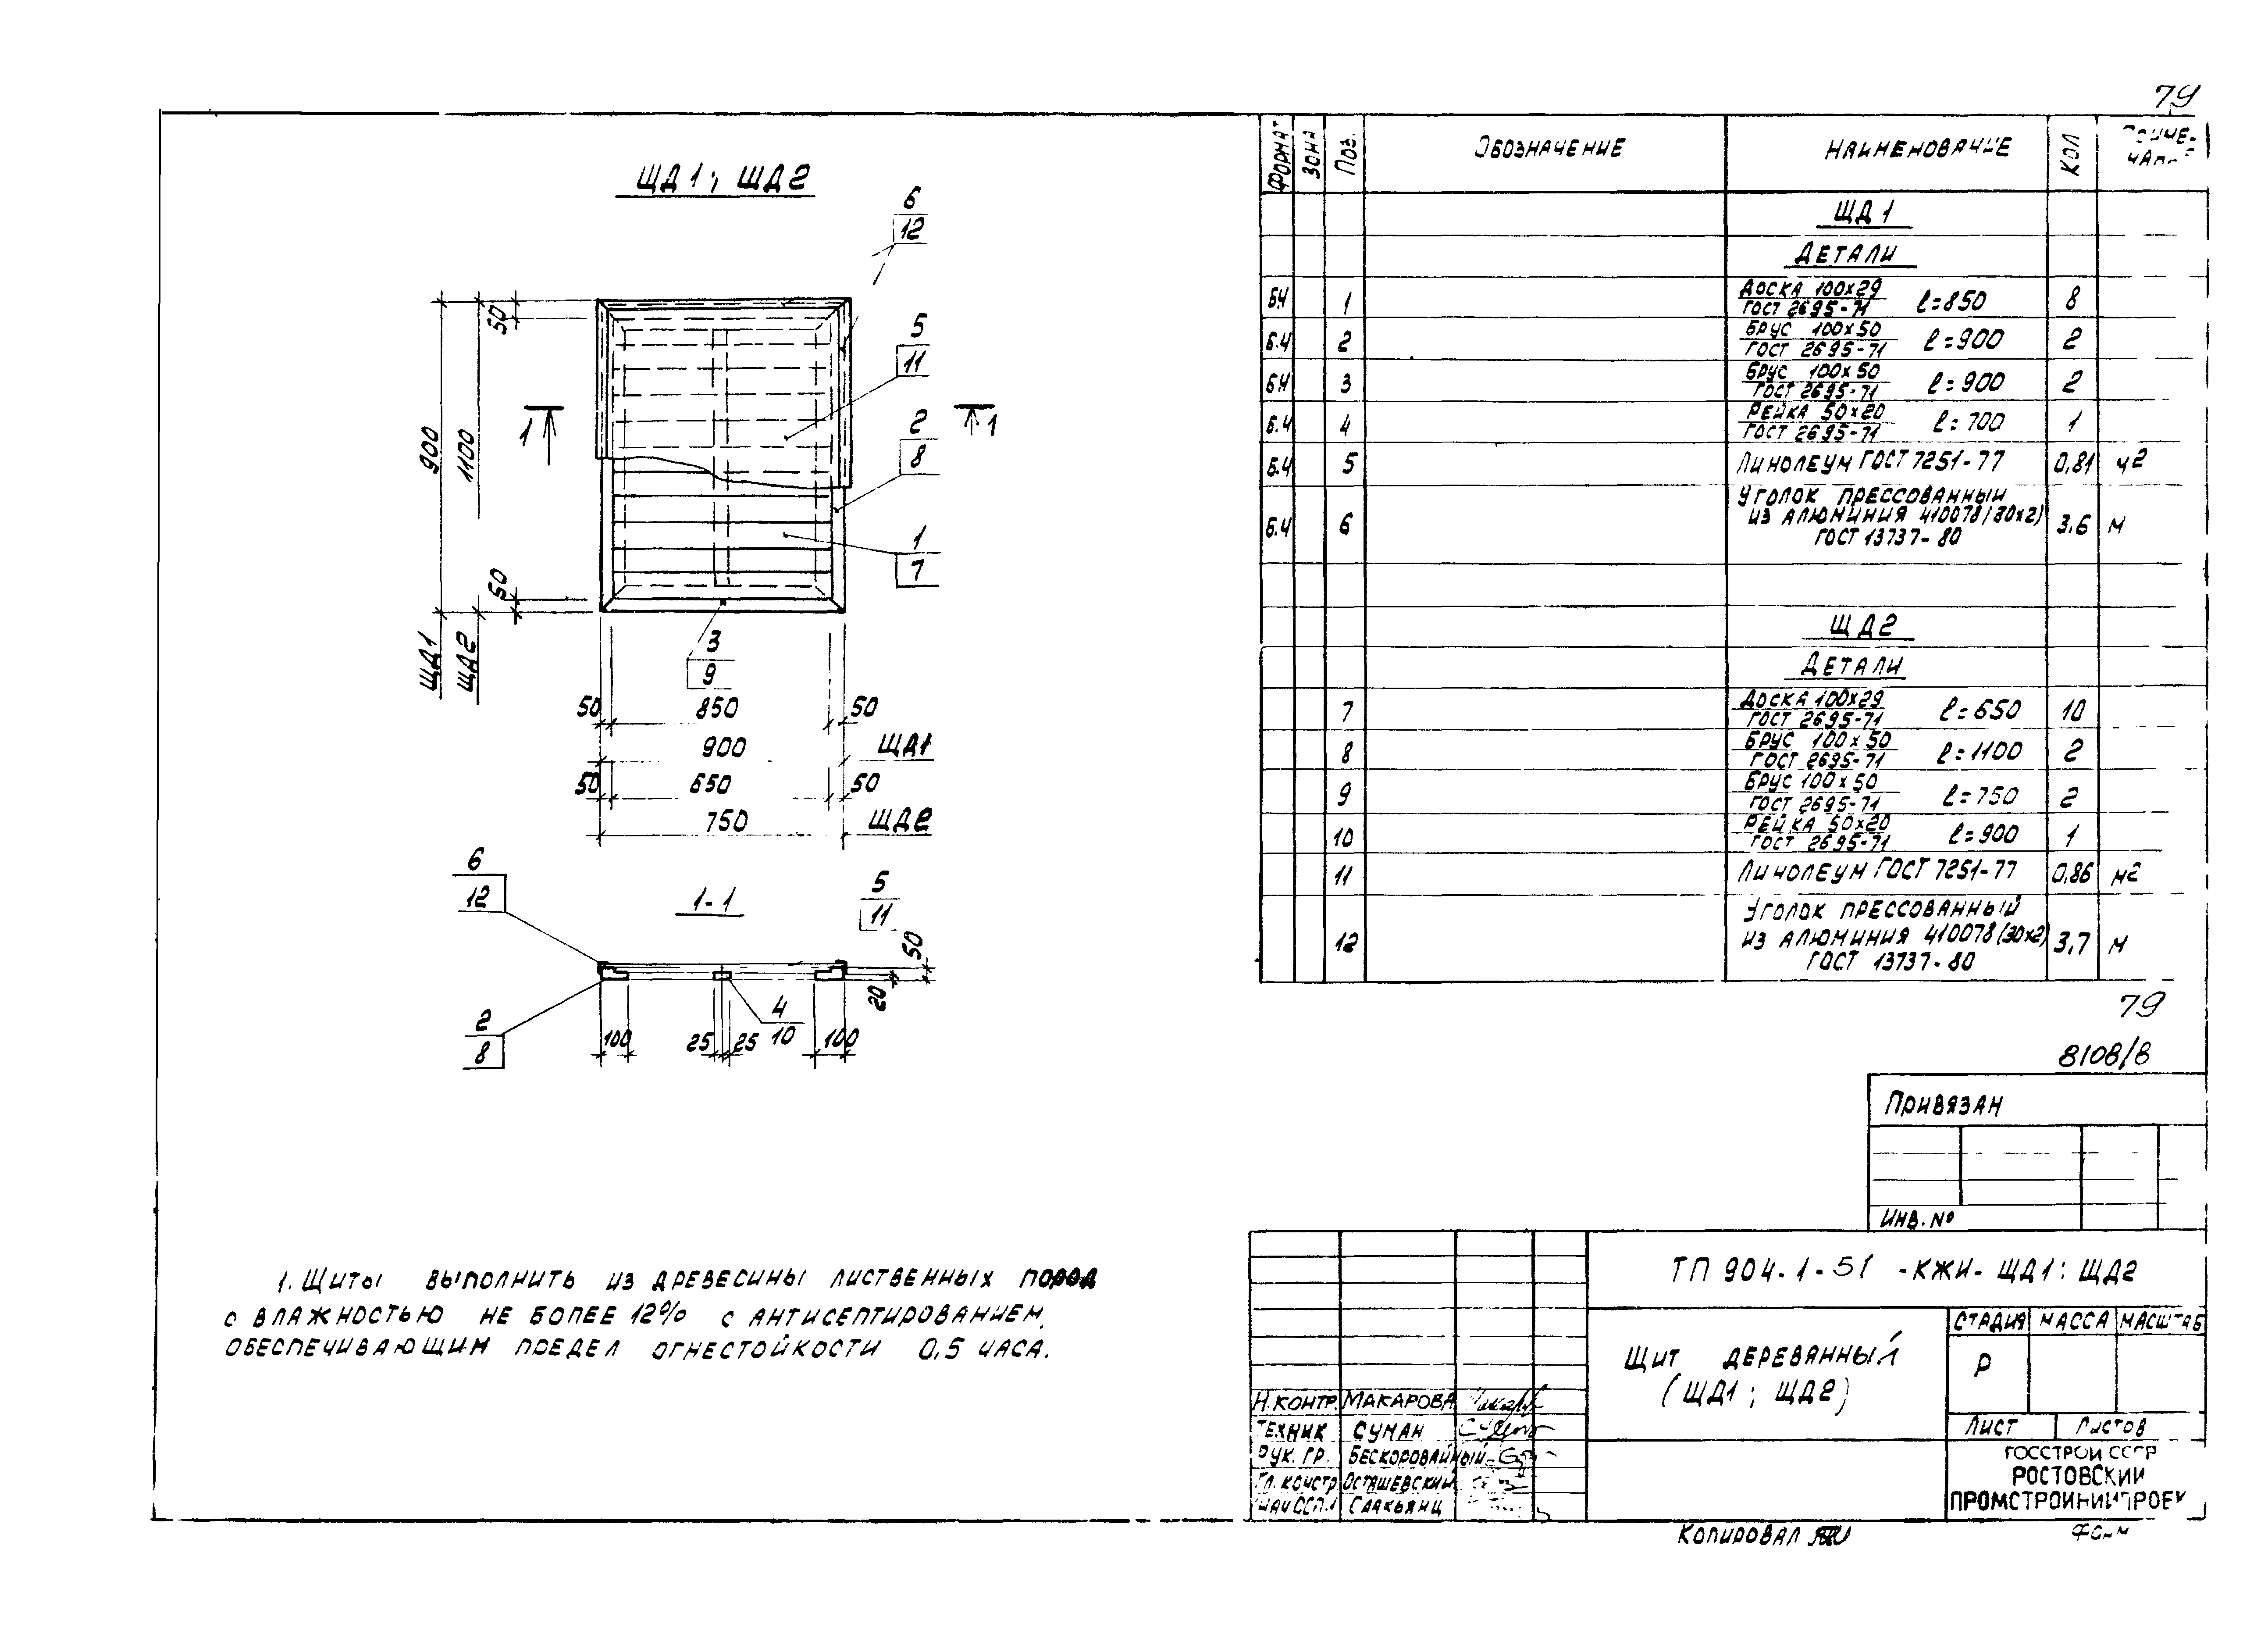 79
ЩД1; ЩД2
6
12
5
11
2
8
1
7
3
9
1
1
50
900
1100
50
ЩД1
ЩД2
50 850 50
900 ЩД1
50 650 50
750 ЩД2
6
12
1-1
5
11
50
20
2
8
4
10
100 25 25 100
1. Щиты выполнить из древесины лиственных пород
с влажностью не более 12% с антисептированием,
обеспечивающим предел огнестойкости 0,5 часа.
Формат Зона Поз. Обозначение Наименование Кол
ЩД1
Детали
БЧ 1 Доска 100х29 ГОСТ 2695-71 ℓ=850 8
Б.Ч 2 Брус 100х50 ГОСТ 2695-71 ℓ=900 2
БЧ 3 Брус 100х50 ГОСТ 2695-71 ℓ=900 2
Б.Ч 4 Рейка 50х20 ГОСТ 2695-71 ℓ=700 1
Б.Ч 5 Линолеум ГОСТ 7251-77 0,81 м2
Уголок прессованный
Б.Ч 6 из алюминия 410078 (30х2) 3,6 м
ГОСТ 13737-80
ЩД2
Детали
7 Доска 100х29 ГОСТ 2695-71 ℓ=650 10
8 Брус 100х50 ГОСТ 2695-71 ℓ=1100 2
9 Брус 100х50 ГОСТ 2695-71 ℓ=750 2
10 Рейка 50х20 ГОСТ 2695-71 ℓ=900 1
11 Линолеум ГОСТ 7251-77 0,86 м2
Уголок прессованный
12 из алюминия 410078 (30х2) 3,7 м
ГОСТ 13737-80
79
8108/8
Привязан
Инв. №
ТП 904-1-51 -КЖИ- ЩД1; ЩД2
Щит деревянный
(ЩД1; ЩД2)
Стадия Масса Масштаб
Р
Лист Листов
Госстрой СССР
Ростовский
Промстройниипроект
Н.контр. Макарова
Техник Суман
Рук. гр. Бескоровайный
Гл. констр Осташевский
Саакьянц
Копировал